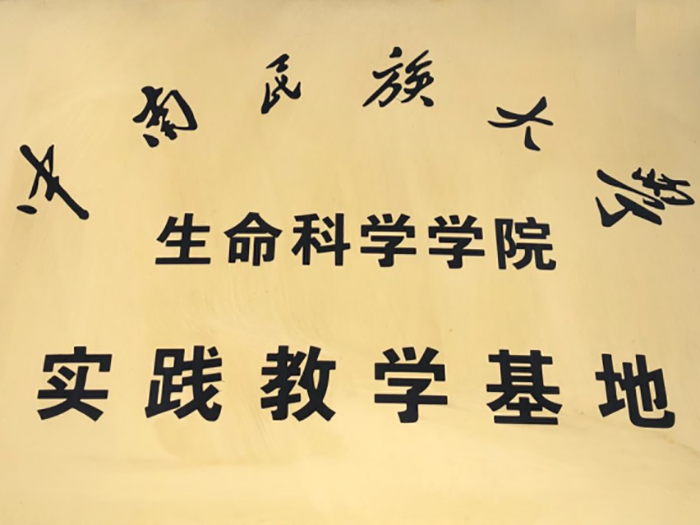 中南民族大学
生命科学学院
实践教学基地